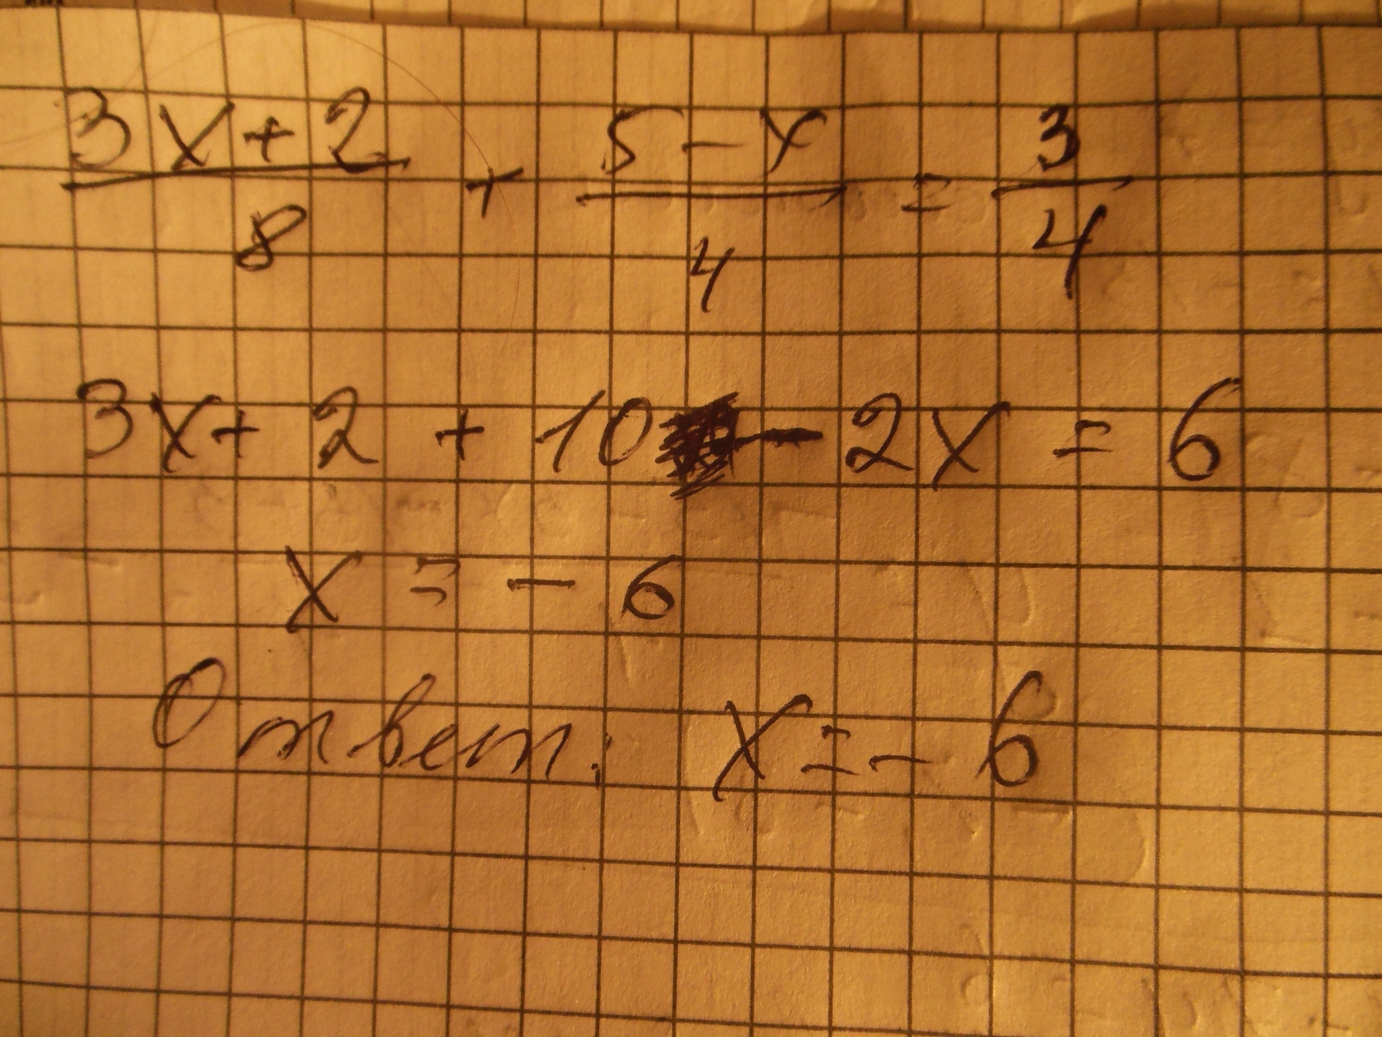 (3x+2)/8 + (5-x)/4 = 3/4
3x+ 2 + 10 - 2x = 6
x = - 6
Ответ: x = - 6